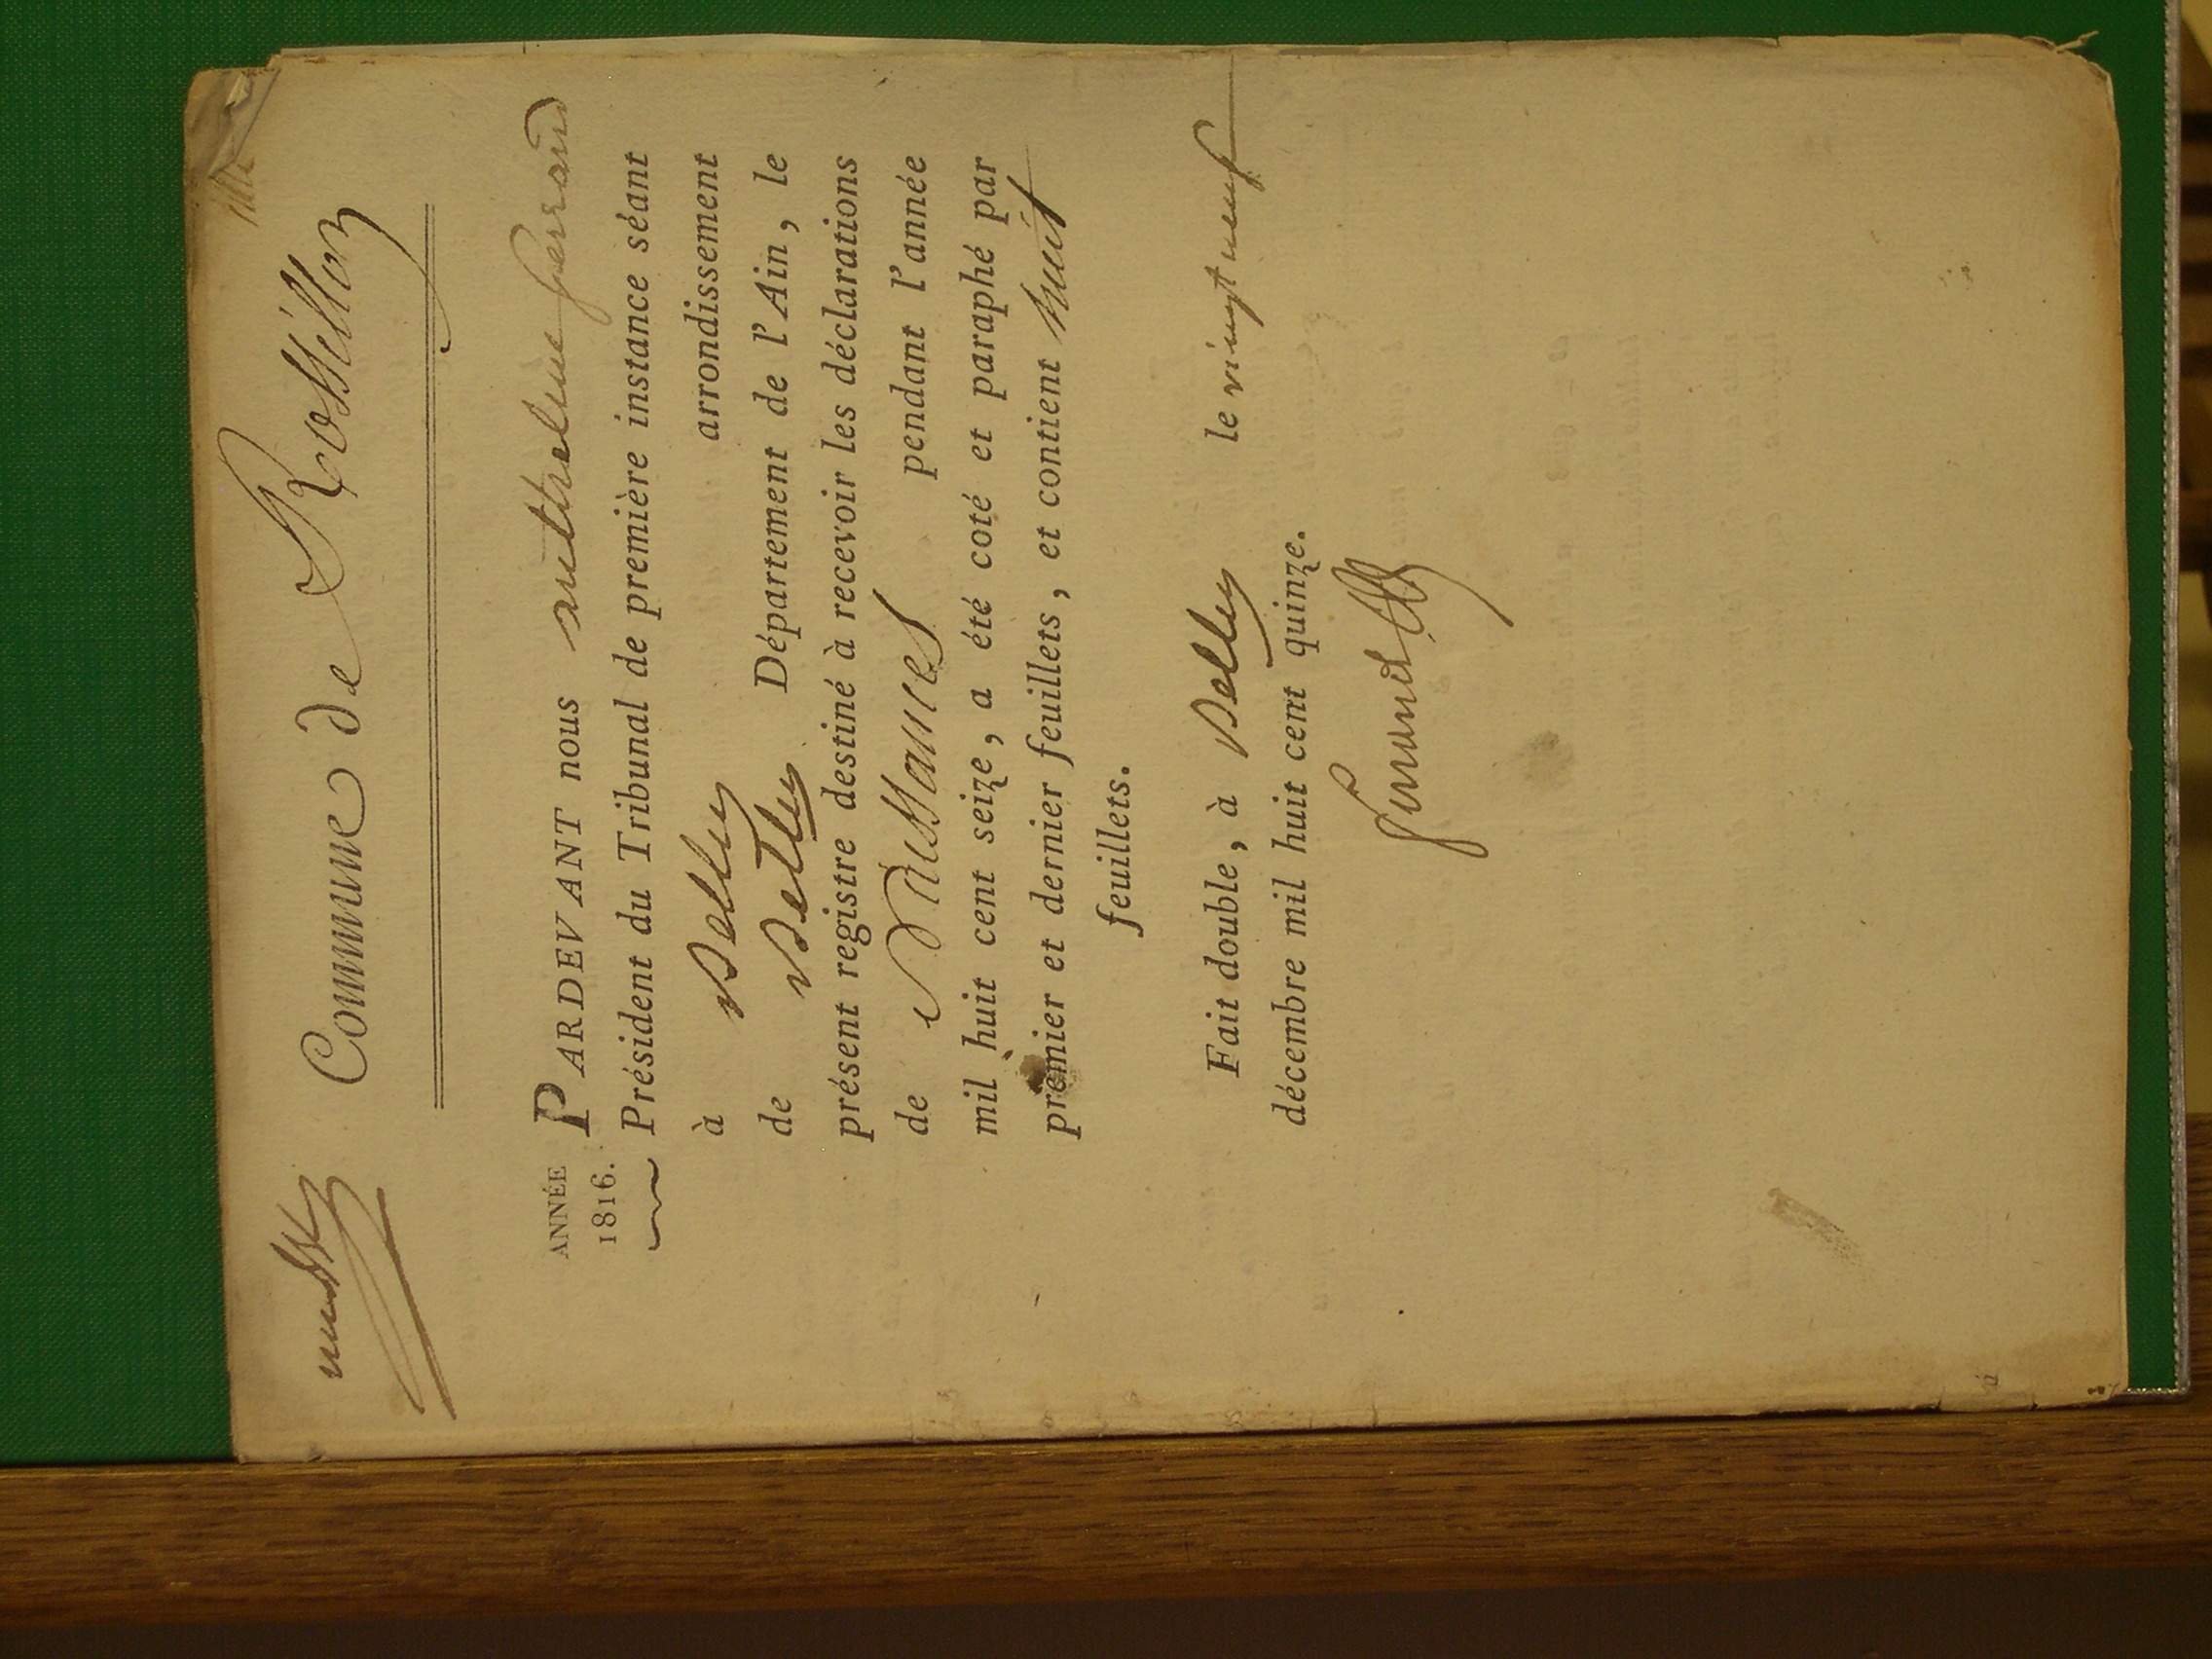 Commune de Rossillon
ANNÉE
1816.
PARDEVANT nous anthelme ferrand
Président du Tribunal de première instance séant
à Belley arrondissement
de Belley Département de l'Ain, le
présent registre destiné à recevoir les déclarations
de Naissances pendant l'année
mil huit cent seize, a été coté et paraphé par
premier et dernier feuillets, et contient huit
feuillets.
Fait double, à Belley le vingt neuf
décembre mil huit cent quinze.
ferrand